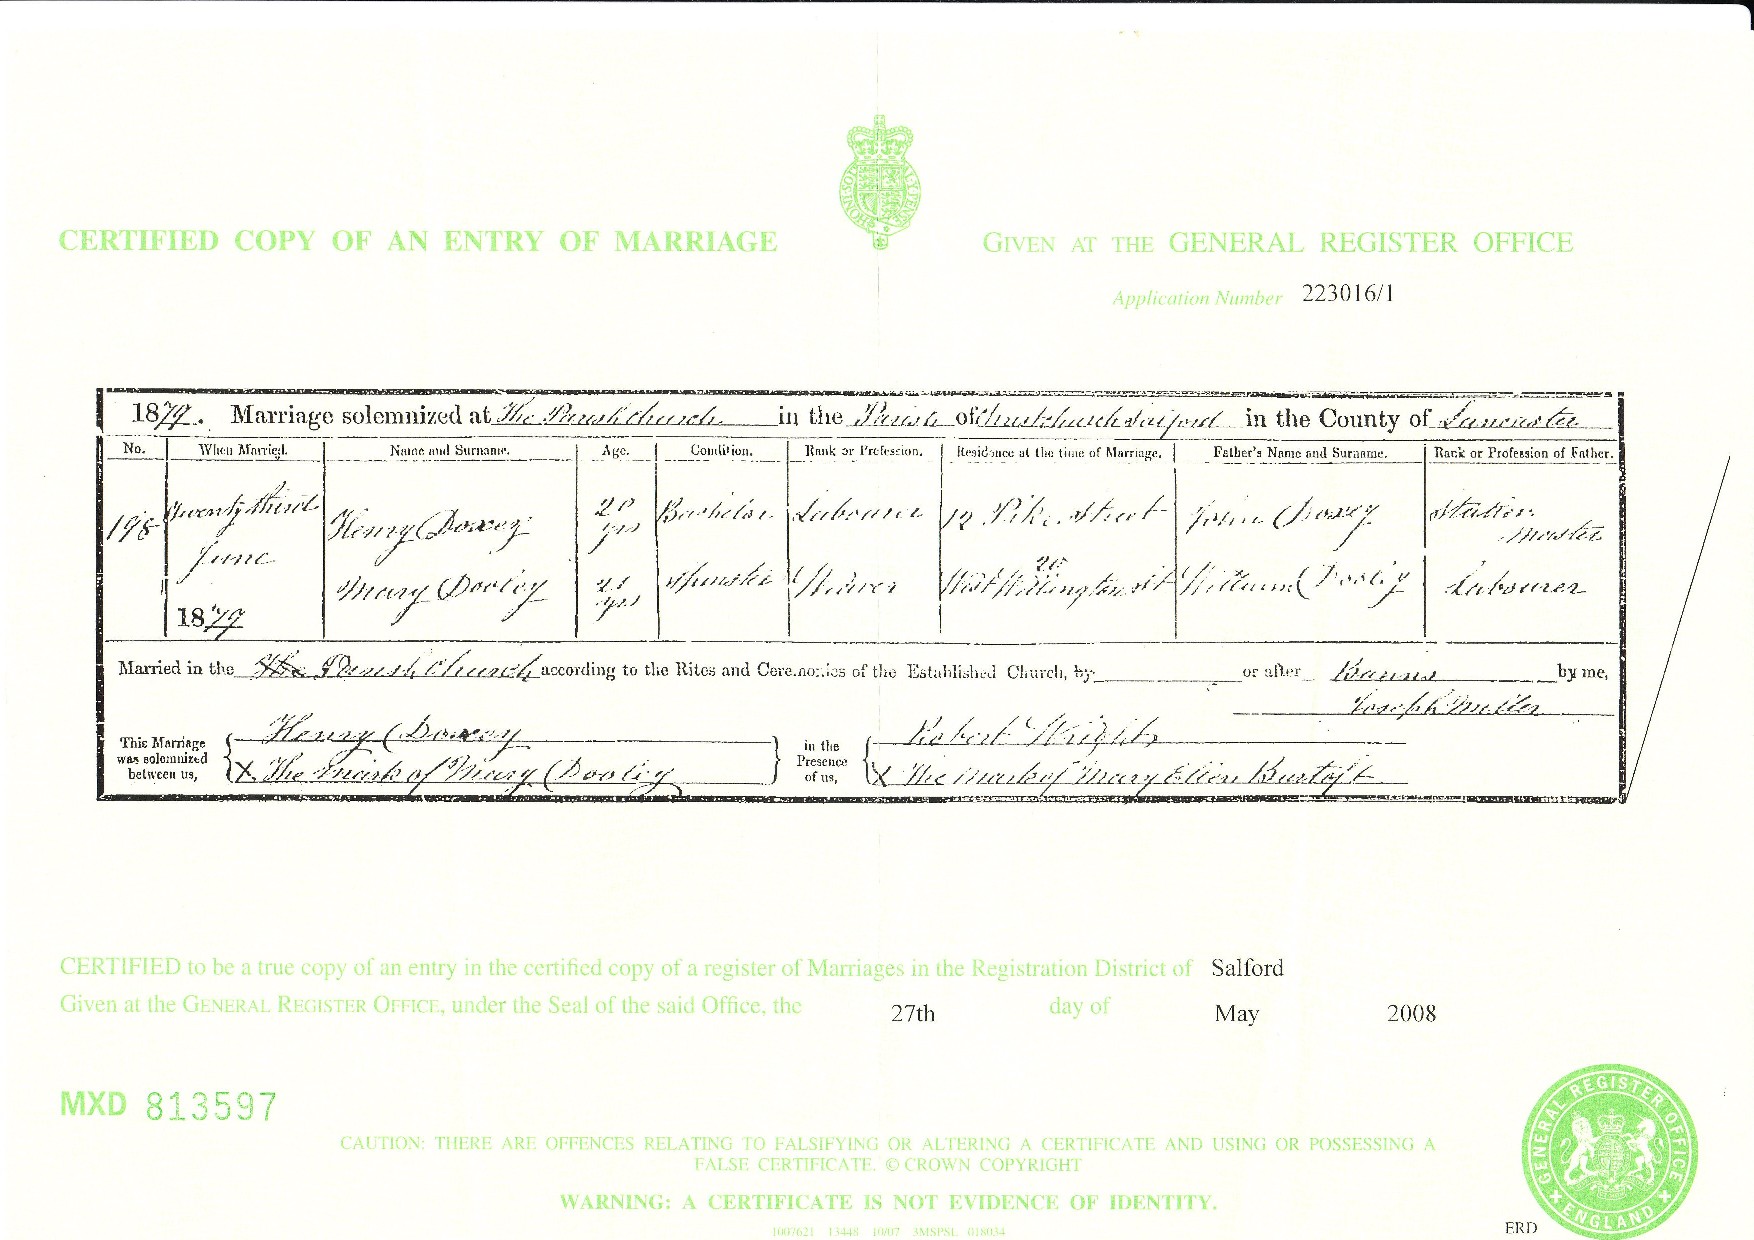 CERTIFIED COPY OF AN ENTRY OF MARRIAGE
GIVEN AT THE GENERAL REGISTER OFFICE
Application Number 223016/1
1879. Marriage solemnized at The Parish Church in the Parish of Christchurch Salford in the County of Lancaster
No. When Married. Name and Surname. Age. Condition. Rank or Profession. Residence at the time of Marriage. Father's Name and Surname. Rank or Profession of Father.
198 Twenty third June 1879
Henry Doxey 20 yrs Bachelor Labourer 12 Pike Street John Doxey Station Master
Mary Dooley 21 yrs Spinster Weaver 20 West Wellington St William Dooley Labourer
Married in the Parish Church according to the Rites and Ceremonies of the Established Church, by or after Banns by me,
Joseph Miller
This Marriage was solemnized between us, Henry Doxey
X The mark of Mary Dooley
in the Presence of us, Robert Wright
X The mark of Mary Ellen
CERTIFIED to be a true copy of an entry in the certified copy of a register of Marriages in the Registration District of Salford
Given at the GENERAL REGISTER OFFICE, under the Seal of the said Office, the 27th day of May 2008
MXD 813597
CAUTION: THERE ARE OFFENCES RELATING TO FALSIFYING OR ALTERING A CERTIFICATE AND USING OR POSSESSING A
FALSE CERTIFICATE. © CROWN COPYRIGHT
WARNING: A CERTIFICATE IS NOT EVIDENCE OF IDENTITY.
1007621 13448 10/07 3MSPSL 018034
ERD
GENERAL REGISTER OFFICE
ENGLAND